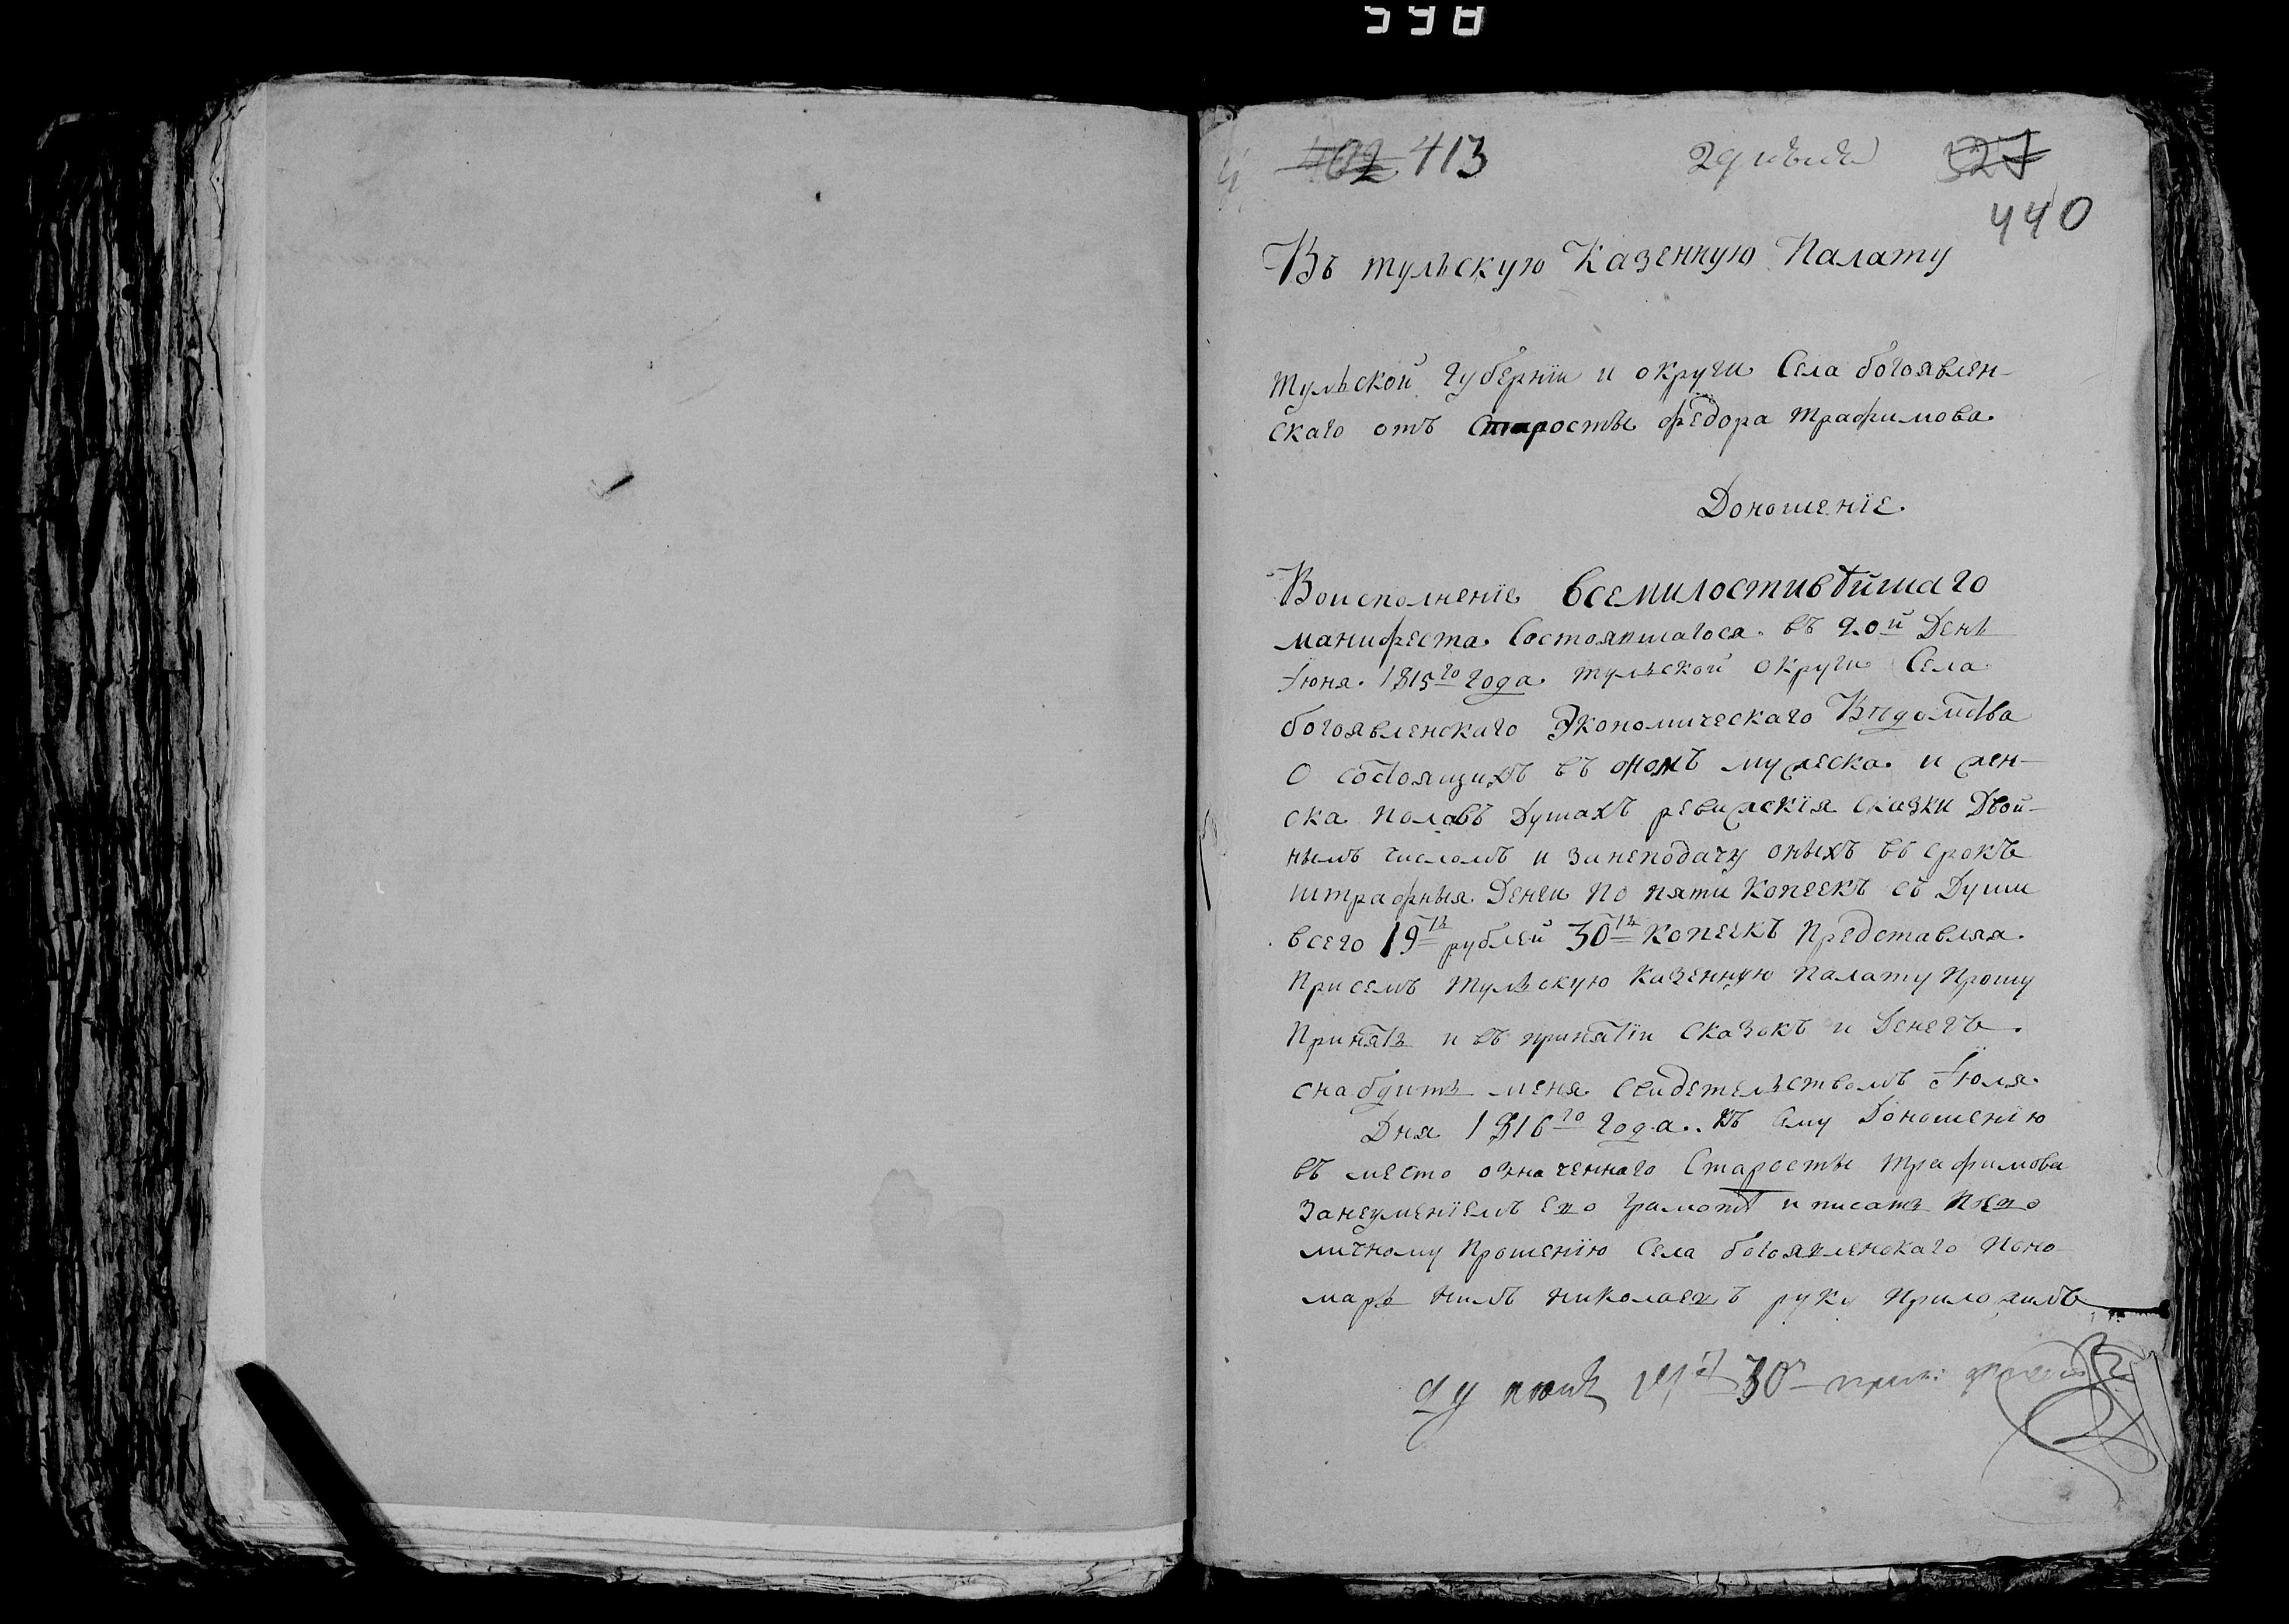 398
402 413
29 июля 327
440
Въ тульскую Казенную Палату
тульской губернiи и округи Села богоявлен-
скаго отъ Старосты федора трафимова
Доношенiе.
Воисполненiе Всемилостивѣйшаго
манифеста Состоявшагося въ 20й День
Iюня 1815го года тульской округи Села
богоявленскаго Экономическаго Ведомства
О Состоящихъ въ ономъ мужеска и жен-
ска полавъ Душахъ ревижскiя сказки Двой-
нымъ числомъ и занеподачу оныхъ въ срокъ
штрафныя Денги по пяти копеекъ съ Души
всего 19ть рублей 30ть копеекъ Представляя
Присемъ тульскую казенную палату прошу
Принять и въ принятiи сказокъ и Денегъ
снабдить меня свидетельствомъ Iюля
Дня 1816го года. Къ Сему Доношенiю
въ место означеннаго Старосты трафимова
занеуменiемъ ево грамотѣ и писать поево
личному прошенiю Села богоявленскаго поно
марь нилъ николаевъ руку приложилъ
30